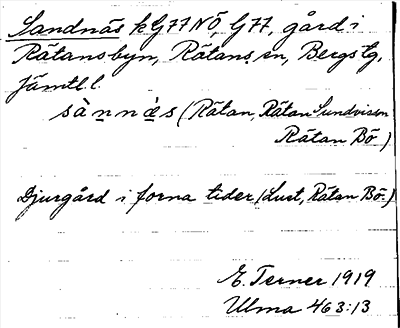 Sandnäs k G77 NÖ, G77, gård i
Rätansbyn, Rätans sn, Bergs tg,
Jämtl. l.
sànnæ̀s (Rätan, Rätan Sundvissen
Rätan Bö.)
Djurgård i forna tider (Lust, Rätan Bö.)
E. Terner 1919
Ulma 463:13